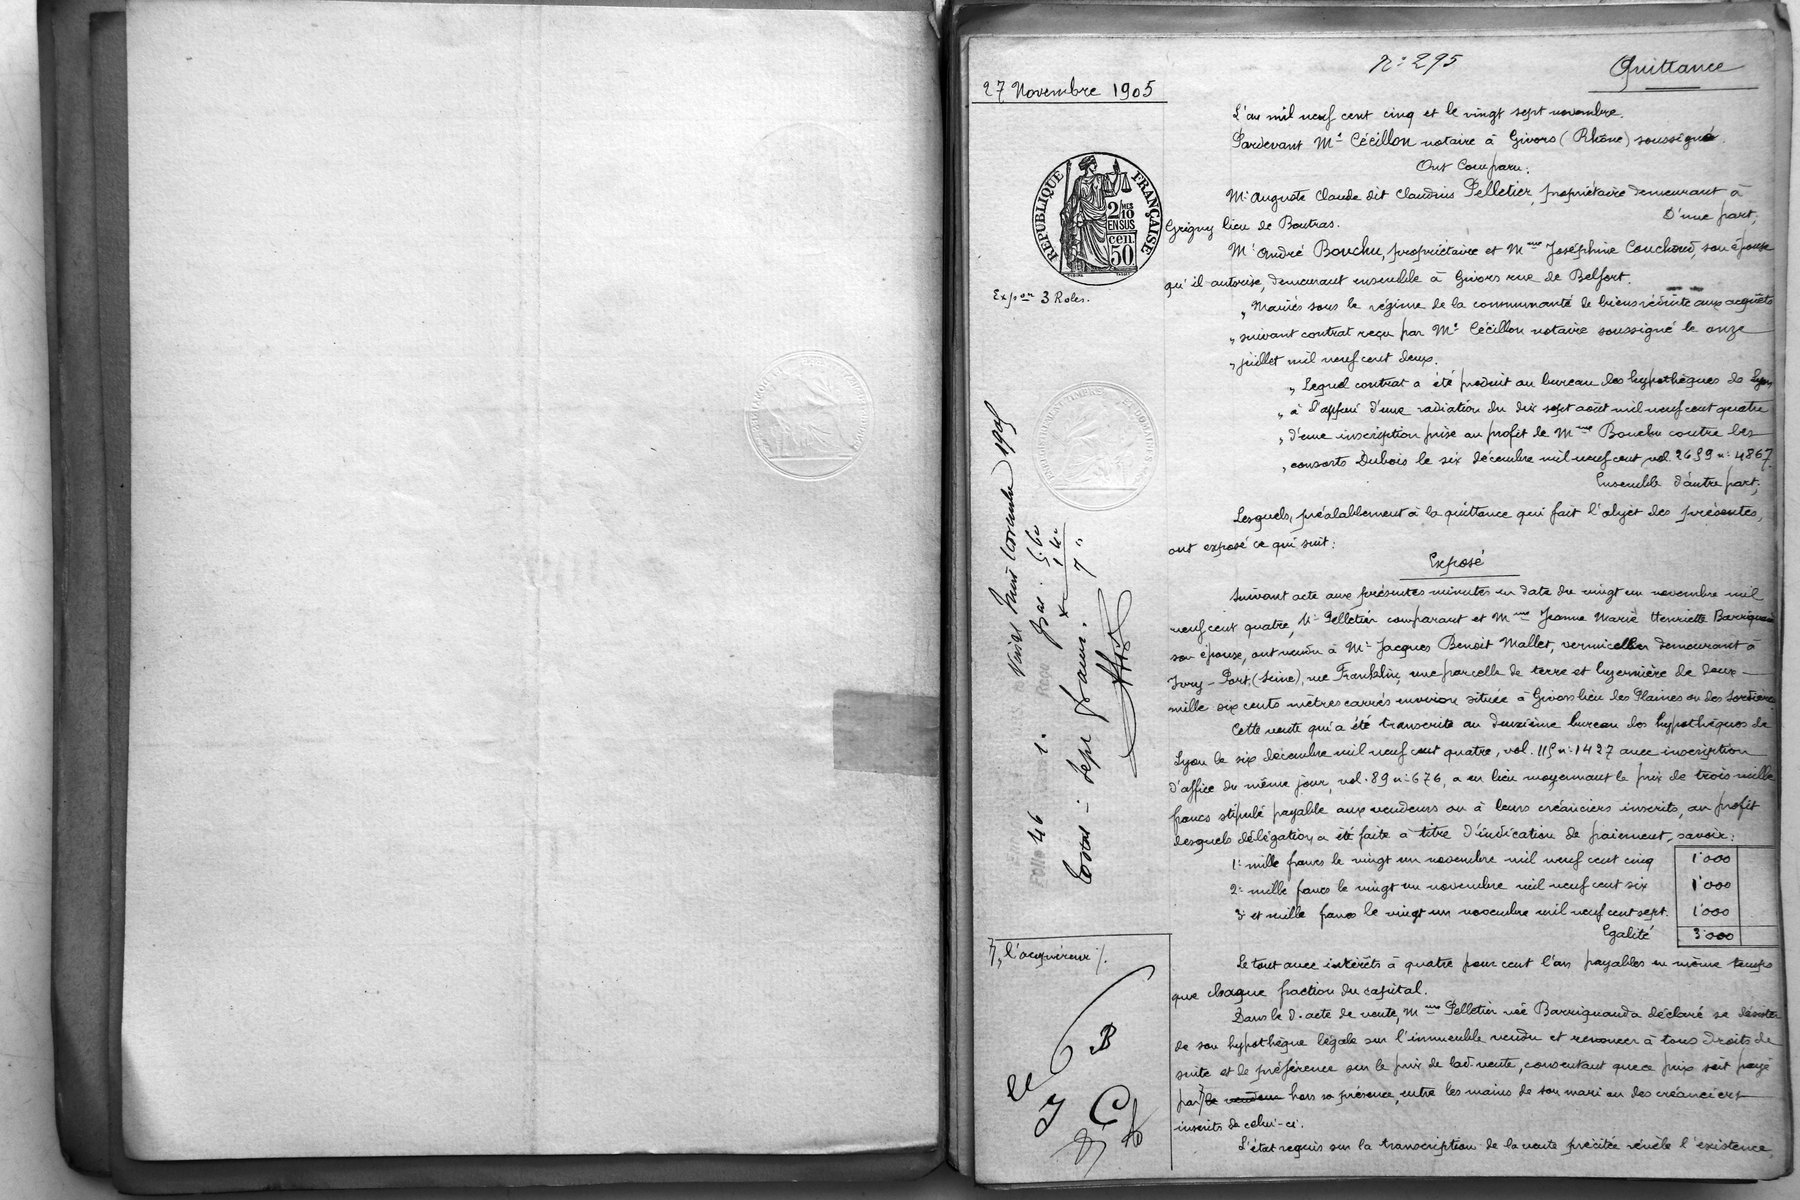 N° 295
Quittance
27 Novembre 1905
L'an mil neuf cent cinq et le vingt sept novembre.
Pardevant Me Cécillon notaire à Givors (Rhône) soussigné.
Ont Comparu:
Mr Auguste Claude dit Claudius Pelletier, propriétaire demeurant à
Grigny lieu de Boutras.
D'une part;
Mr André Bouchu, propriétaire et Mme Joséphine Couchoud, son épouse
qu'il autorise, demeurant ensemble à Givors rue de Belfort.
„ Mariés sous le régime de la communauté de biens réduite aux acquêts
„ suivant contrat reçu par Me Cécillon notaire soussigné le onze
„ juillet mil neuf cent deux.
„ Lequel contrat a été produit au bureau des hypothèques de Lyon
„ à l'appui d'une radiation du dix sept août mil neuf cent quatre
„ d'une inscription prise au profit de Mme Bouchu contre les
„ consorts Dubois le six décembre mil neuf cent, vol. 2659 n° 4867.
Ensemble d'autre part;
Lesquels, préalablement à la quittance qui fait l'objet des présentes,
ont exposé ce qui suit:
Exposé
Suivant acte aux présentes minutes en date du vingt un novembre mil
neuf cent quatre, Mr Pelletier comparant et Mme Jeanne Marie Henriette Barriquand
son épouse, ont vendu à Mr Jacques Benoit Mallet, vermicellier demeurant à
Ivry-Port, (Seine), rue Franklin, une parcelle de terre et luzernière de deux
mille six cents mètres carrés environ située à Givors lieu des Plaines ou des
Cette vente qui a été transcrite au deuxième bureau des hypothèques de
Lyon le six décembre mil neuf cent quatre, vol. 115 n° 1427 avec inscription
d'office du même jour, vol. 89 n° 676, a eu lieu moyennant le prix de trois mille
francs stipulé payable aux vendeurs ou à leurs créanciers inscrits, au profit
desquels délégation a été faite à titre d'indication de paiement, savoir:
1° mille francs le vingt un novembre mil neuf cent cinq 1000
2° mille francs le vingt un novembre mil neuf cent six 1000
3° et mille francs le vingt un novembre mil neuf cent sept. 1000
Egalité 3000
Le tout avec intérêts à quatre pour cent l'an payables en même temps
que chaque fraction du capital.
Dans le d. acte de vente, Mme Pelletier née Barriquand a déclaré se désister
de son hypothèque légale sur l'immeuble vendu et renoncer à tous droits de
suite et de préférence sur le prix de lad. vente, consentant que ce prix soit payé
par le vendeur hors sa présence, entre les mains de son mari ou des créanciers
inscrits de celui-ci.
L'état requis sur la transcription de la vente précitée révèle l'existence,
RÉPUBLIQUE FRANÇAISE
2/10 MES
EN SUS
cen.
50
Expon 3 Roles.
novembre 1905
Folio 46
sept francs.
l'acquéreur /.
B
J C